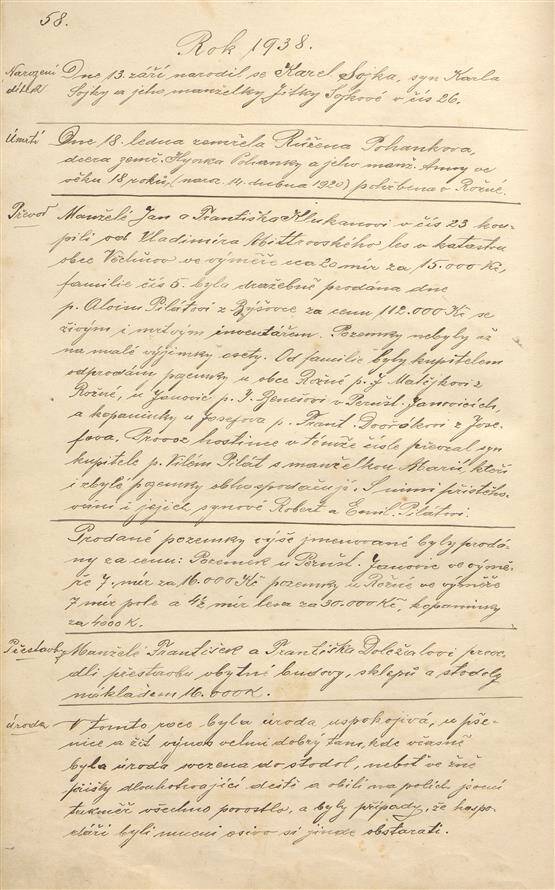 58.
Rok 1938.
Narození Dne 13. září narodil se Karel Sojka, syn Karla
dítka Sojky a jeho manželky Jitky Sojkové v čís 26.
Úmrtí Dne 18. ledna zemřela Růžena Pohankova,
dcera země. Hynka Pohanky a jeho manž. Anny ve
věku 18 roků, (nar. 14. dubna 1920) pohřbena v Rožné.
Převod Manželé Jan a Františka Klukanovi v čís 23 kou-
pili od Vladimíra Mittrovského les v katastru
obce Věchnov ve výměře cca 20 měr za 15.000 Kč,
familie čís 5. byla dražebně prodána dne
p. Aloisu Pilátovi z Býšovce za cenu 112.000 Kč se
živým i mrtvým inventářem. Pozemky nebyly až
na malé výjimky osety. Od familie byly kupitelem
odprodány pozemky u obce Rožné p. J. Matějkovi z
Rožné, u Janovic p. J. Benešovi v Pernšt. Janovicích,
a kopaninky u Josefova p. Frant. Dvořákovi z Jose-
fova. Provoz hostince v témže čísle převzal syn
kupitele p. Vilém Pilát s manželkou Marií, kteří
i zbylé pozemky obhospodařují. S nimi přistěho-
váni i jejich synové Robert a Emil Pilátovi.
Prodané pozemky výše jmenované byly prodá-
ny za cenu: Pozemek u Pernšt. Janovic ve výmě-
ře 7. měr za 16.000 Kč pozemky u Rožné ve výměře
7 měr pole a 4½ měr lesa za 30.000 Kč, kopaninky
za 4000 K.
Přestavby Manželé František a Františka Doležalovi prove-
dli přestavbu obytné budovy, sklepů a stodoly
nákladem 16.000 K.
Úroda V tomto roce byla úroda uspokojivá, u pše-
nice a žit výnos velmi dobrý tam, kde včasně
byla úroda svezena do stodol, neboť ve žně
přišly dlouhotrvající deště a obilí na polích
takměř všechno porostlo, a byly případy, že hospo-
dáři byli nuceni osivo si jinde obstarati.